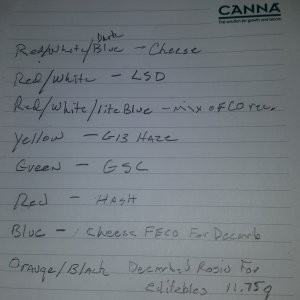 CANNA
The solution for growth and bloom
Dark
Red/White/Blue - Cheese
Red/White - LSD
Red/White/liteBlue - mix of ECO
Yellow - G13 Haze
Green - GSC
Red - HASH
Blue - Cheese FECO For Decarb
Orange/Black Decarbed Rosin For
editebles 11.75g